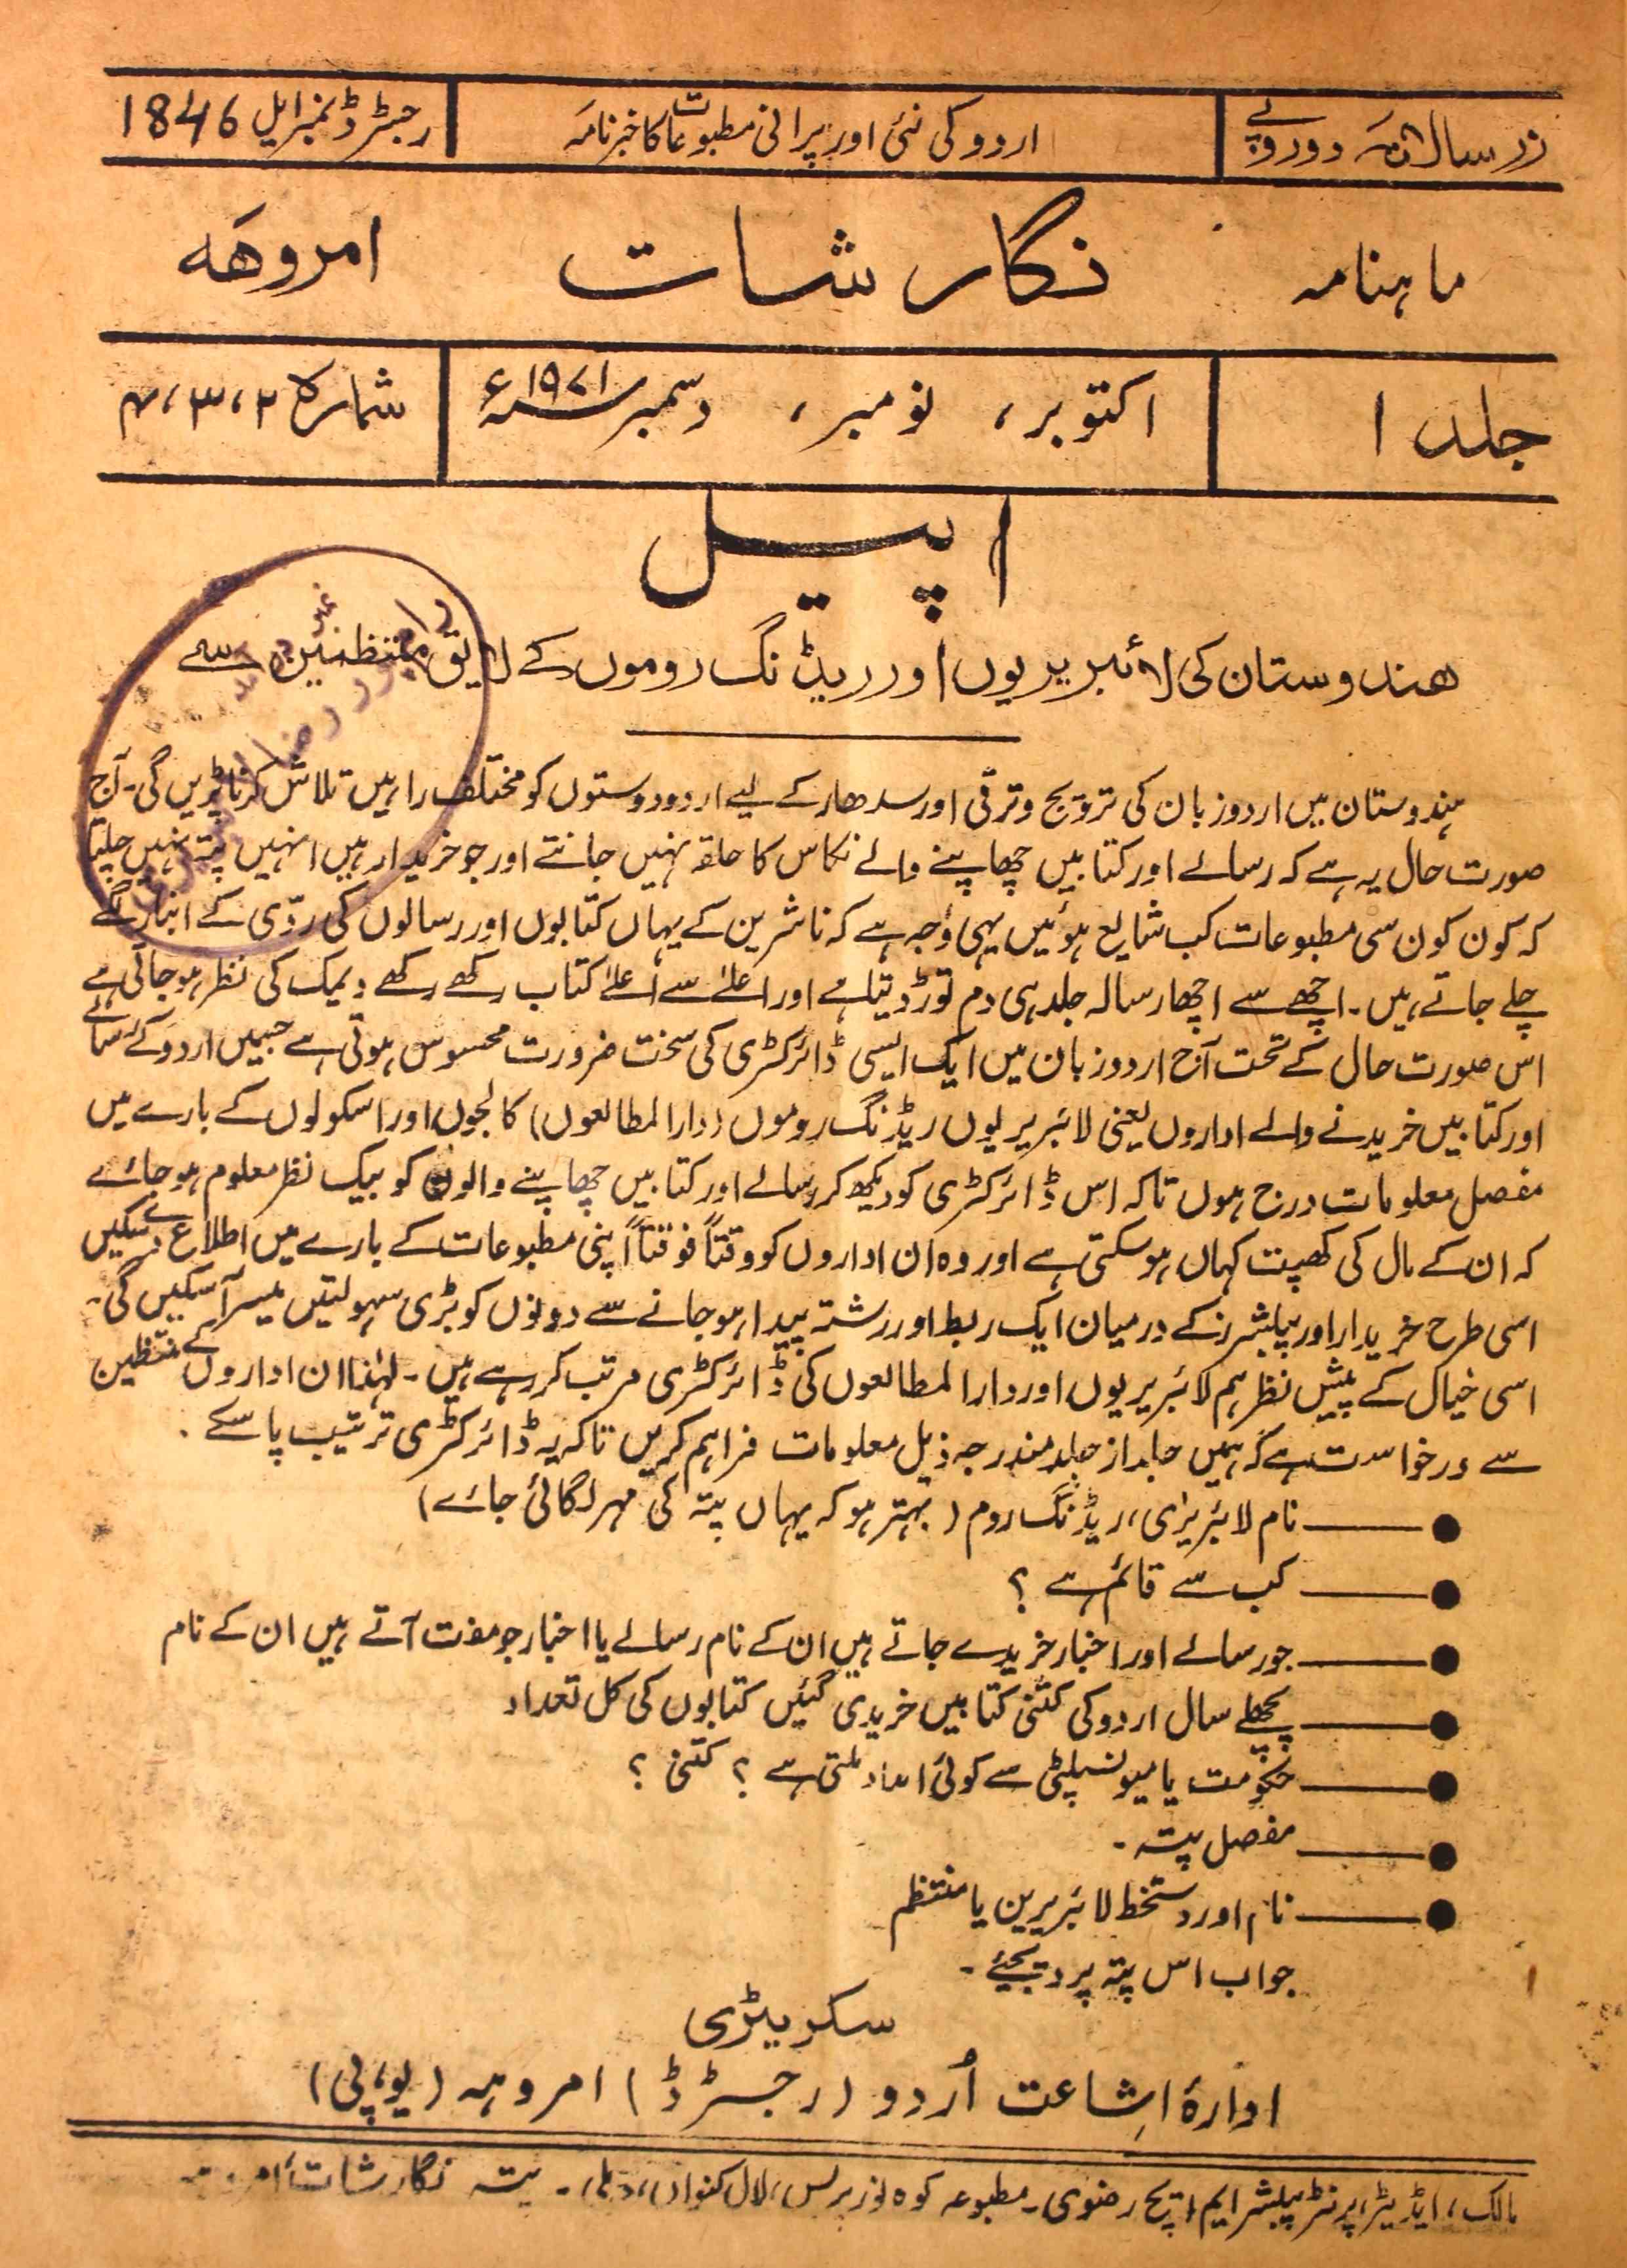 زر سالانہ دو روپے
اردو کی نئی اور پرانی مطبوعات کا خبرنامہ
رجسٹرڈ نمبر ایل 1846
ماہنامہ
نگارشات
امروهہ
جلد ۱
اکتوبر، نومبر، دسمبر ۱۹۷۱ء
شمارہ ۲، ۳، ۴
اپیل
ھندوستان کی لائبریریوں اور ریڈنگ روموں کے لایق منتظمین سے
ہندوستان میں اردو زبان کی ترویج و ترقی اور سدھار کے لیے اردو دوستوں کو مختلف راہیں تلاش کرنا پڑیں گی۔ آج
صورت حال یہ ہے کہ رسالے اور کتابیں چھاپنے والے نکاس کا حلقہ نہیں جانتے اور جو خریدار ہیں انہیں پتہ نہیں چلتا
کہ کون کون سی مطبوعات کب شایع ہوئیں یہی وجہ ہے کہ ناشرین کے یہاں کتابوں اور رسالوں کی ردّی کے انبار لگے
چلے جاتے ہیں۔ اچھے سے اچھا رسالہ جلد ہی دم توڑ دیتا ہے اور اعلےٰ سے اعلےٰ کتاب رکھے رکھے دیمک کی نظر ہو جاتی ہے
اس صورت حال کے تحت آج اردو زبان میں ایک ایسی ڈائرکٹری کی سخت ضرورت محسوس ہوتی ہے جسمیں اردو کے رسائے
اور کتابیں خریدنے والے اداروں یعنی لائبریریوں ریڈنگ روموں (دارالمطالعوں) کالجوں اور اسکولوں کے بارے میں
مفصل معلومات درج ہوں تاکہ اس ڈائرکٹری کو دیکھ کر رسالے اور کتابیں چھاپنے والوں کو بیک نظر معلوم ہو جائے
کہ ان کے مال کی کھپت کہاں ہو سکتی ہے اور وہ ان اداروں کو وقتاً فوقتاً اپنی مطبوعات کے بارے میں اطلاع دے سکیں
اسی طرح خریدار اور پبلشرز کے درمیان ایک ربط اور رشتہ پیدا ہو جانے سے دونوں کو بڑی سہولتیں میسر آ سکیں گی۔
اسی خیال کے پیش نظر ہم لائبریریوں اور دارالمطالعوں کی ڈائرکٹری مرتب کر رہے ہیں۔ لہٰذا ان اداروں کے منتظمین
سے درخواست ہے کہ ہمیں جلد از جلد مندرجہ ذیل معلومات فراہم کریں تاکہ یہ ڈائرکٹری ترتیب پا سکے۔
● —— نام لائبریری، ریڈنگ روم (بہتر ہو کہ یہاں پتہ کی مہر لگائی جائے)
● —— کب سے قائم ہے؟
● —— جو رسالے اور اخبار خریدے جاتے ہیں ان کے نام رسالے یا اخبار جو مفت آتے ہیں ان کے نام
● —— پچھلے سال اردو کی کتنی کتابیں خریدی گئیں کتابوں کی کل تعداد
● —— حکومت یا میونسپلٹی سے کوئی امداد ملتی ہے؟ کتنی؟
● —— مفصل پتہ۔
● —— نام اور دستخط لائبریرین یا منتظم
جواب اس پتہ پر دیجئے۔
سکریٹری
ادارۂ اشاعت اُردو (رجسٹرڈ) امروہہ (یو، پی)
مالک، ایڈیٹر، پرنٹر پبلشر ایم، ایچ رضوی۔ مطبوعہ کوہ نور پریس، لال کنواں، دہلی۔ پتہ نگارشات، امروہہ